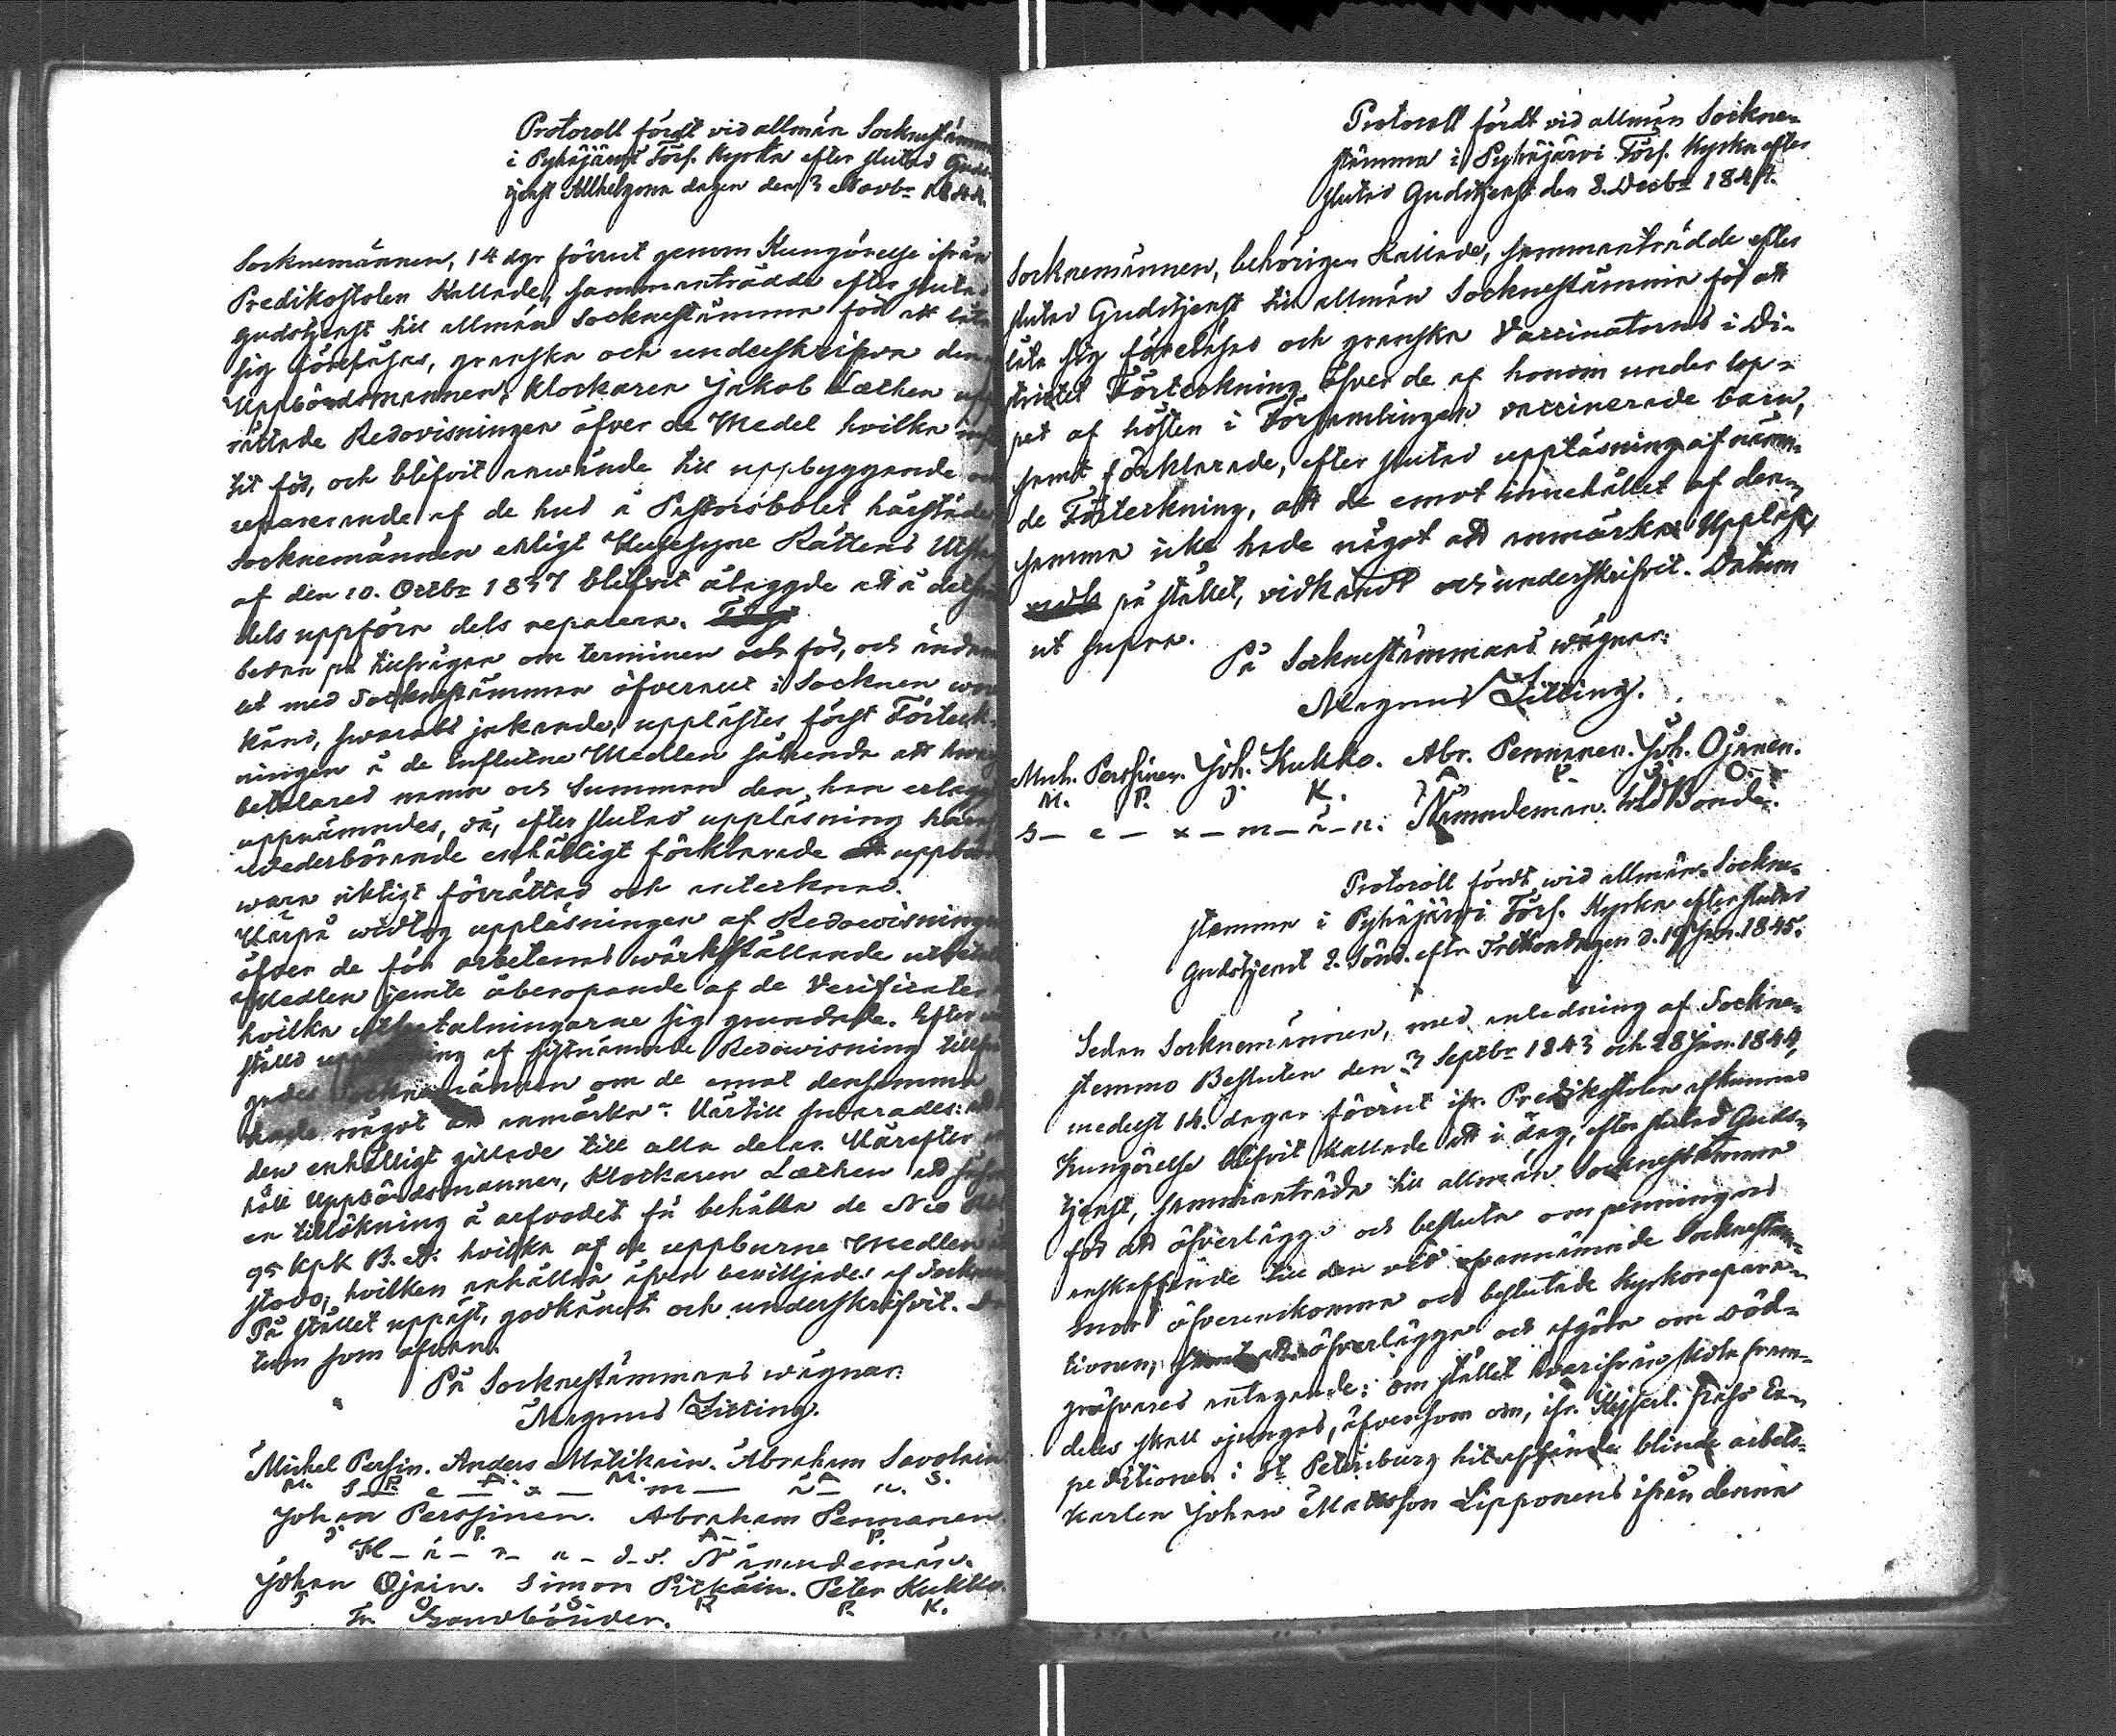 Protocoll fördt vid allmän Sockenstämma
i Pyhäjärvi Förs. Kyrka efter slutad Guds-
tjenst Allhelgona dagen den 3 Novbr 1844.
Socknemännen, 14 dgr förrut genom Kungörelse ifrån
Predikostolen Kallade, sammanträdde efter slutad
gudstjenst till allmän Socknestämma för att låta
sig föreläsas, granska och underskrifva den
Uppbördsmannen, Klockaren Jakob Læthen upp
rättade Redovisningen öfver de Medel hvilka
tit för, och blifvit använde till uppbyggande
reparerande af de hus å Pastorsbolet härstädes
Socknemännen enligt Husesyns Rättens Utslag
af den 10. Octbr 1837 blifvit ålagde att å
dels uppföra dels reparera.
bedan på tillfrågan om terminen och för, och
at med Socknestämman öfveraut i Socknen
känd, swarats jakande, upplästes först Förteck-
ningen å de influtne Medlen
betalares namn och Summan den han
uppnämndes, då, efter slutad uppläsning
wederbörande enhälligt förklarade uppbörden
wara riktigt förrättad och antecknad.
Härpå widtog uppläsningen af Redowisningen
öfver de för arbetenas wärkställande
Medlen jemte åberopande af de Verificater
hvilka utbetalningarne sig grundade. Efter
af sistnämnde Redowisning
Socknemännen om de emot densamma
hade något att anmärka: Härtill swarades:
den enhälligt gillade till alla delar. Härefter
höll Uppbördsmannen, Klockaren Læthen
en tillökning å arfvodet få behålla de Nio
95 Kpk B. A: hvilka af de uppburne Medlen
stodo; hvilken anhållan äfven bewilljades af
På stället uppläst, godkändt och underskrifvit.
tum som ofvan.
På Socknestämmans wägnar:
Magnus Zitting.
Michel Persin. Anders Matikain. Abraham Savolain
M. P. A. M. A S.
S - e - x - m - ä - n.
Johan Perssinen. Abraham Pennanen
J. P. A. P.
H - ä - r - a - d - s. Nämndemän.
Johan Ojain. Simon Pitkäin. Peter Kukko.
J O S P P. K.
Fr. Grandbönder.
Protocoll fördt vid allmän Sockne-
stämma i Pyhäjärvi Förs. Kyrka efter
slutad Gudstjenst den 8. Decbr 1844.
Socknemännen, behörigen Kallade, sammanträdde efter
slutad Gudstjenst till allmän Socknestämma för att
låta sig föreläsas och granska Vaccinatorns i Di-
strictet Förteckning öfver de af honom under lop-
pet af hösten i Församlingen vaccinerade barn,
samt förklarade, efter slutad uppläsning af nämn-
de Förteckning, att de emot innehållet af den
samma icke hade något att anmärka. Uppläst,
på stället, vidkändt och underskrifvit. Datum
ut supra.
På Socknestämmans wägnar:
Magnus Zitting.
Mich. Perssinen. Joh. Kukko. Abr. Pennanen. Joh. Ojanen.
M. P. J. K. A P. J O.
s - e - x - m - ä - n. Nämndemän. Bonde.
Protocoll fördt wid allmän Sockne-
stämma i Pyhäjärwi Förs. Kyrka efter slutad
Gudstjenst 2. Sönd. efter Trettondagen d. 19 Jan. 1845.
Sedan Socknemännen, med anledning af Sockne-
stemmo Besluten den 3 Septbr 1843 och 28 Jan. 1844,
medelst 14. dagar förrut ifr. Predikstolen afkunnad
Kungörelse blifvit kallade att i dag, efter slutad Guds-
tjenst, sammanträda till allmän Socknestämma
för att öfverlägga och besluta om penningars
anskaffande till den vid ofvannämnde Socknestäm-
mor öfverenskomna och beslutade Kyrkorepara-
tionen, öfverlägga och afgöra om död-
gräfvares antagande: om stället hvarifrån sista fram-
deles skall sjungas, äfvensom om, ifr. Kejserl. Ex-
peditionen i St. Petersburg hitsände blinde arbets-
karlen Johan Mattsson Lipponens ifrån denna